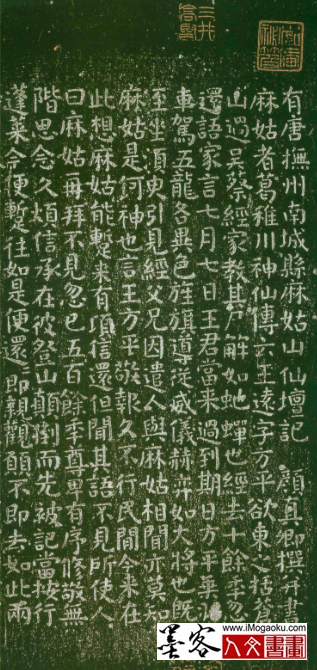 有唐撫州南城縣麻姑山仙壇記 顏真卿撰并書
麻姑者葛稚川神仙傳云王遠字方平欲東之括蒼
山過吳蔡經家教其尸解如蛇蟬也經去十餘年忽
還語家言七月七日王君當來過到期日方平乘羽
車駕五龍各異色旌旗導從威儀赫弈如大將也既
至坐須臾引見經父兄因遣人與麻姑相聞亦莫知
麻姑是何神也言王方平敬報久不行民間今來在
此想麻姑能暫來有頃信還但聞其語不見所使人
曰麻姑再拜不見忽已五百餘季尊卑有序修敬無
階思念久煩信承在彼登山顛倒而先被記當按行
蓬萊今便暫往如是便還即親觀願不即去如此兩
墨客
人文書畫
www.iMogaoku.com